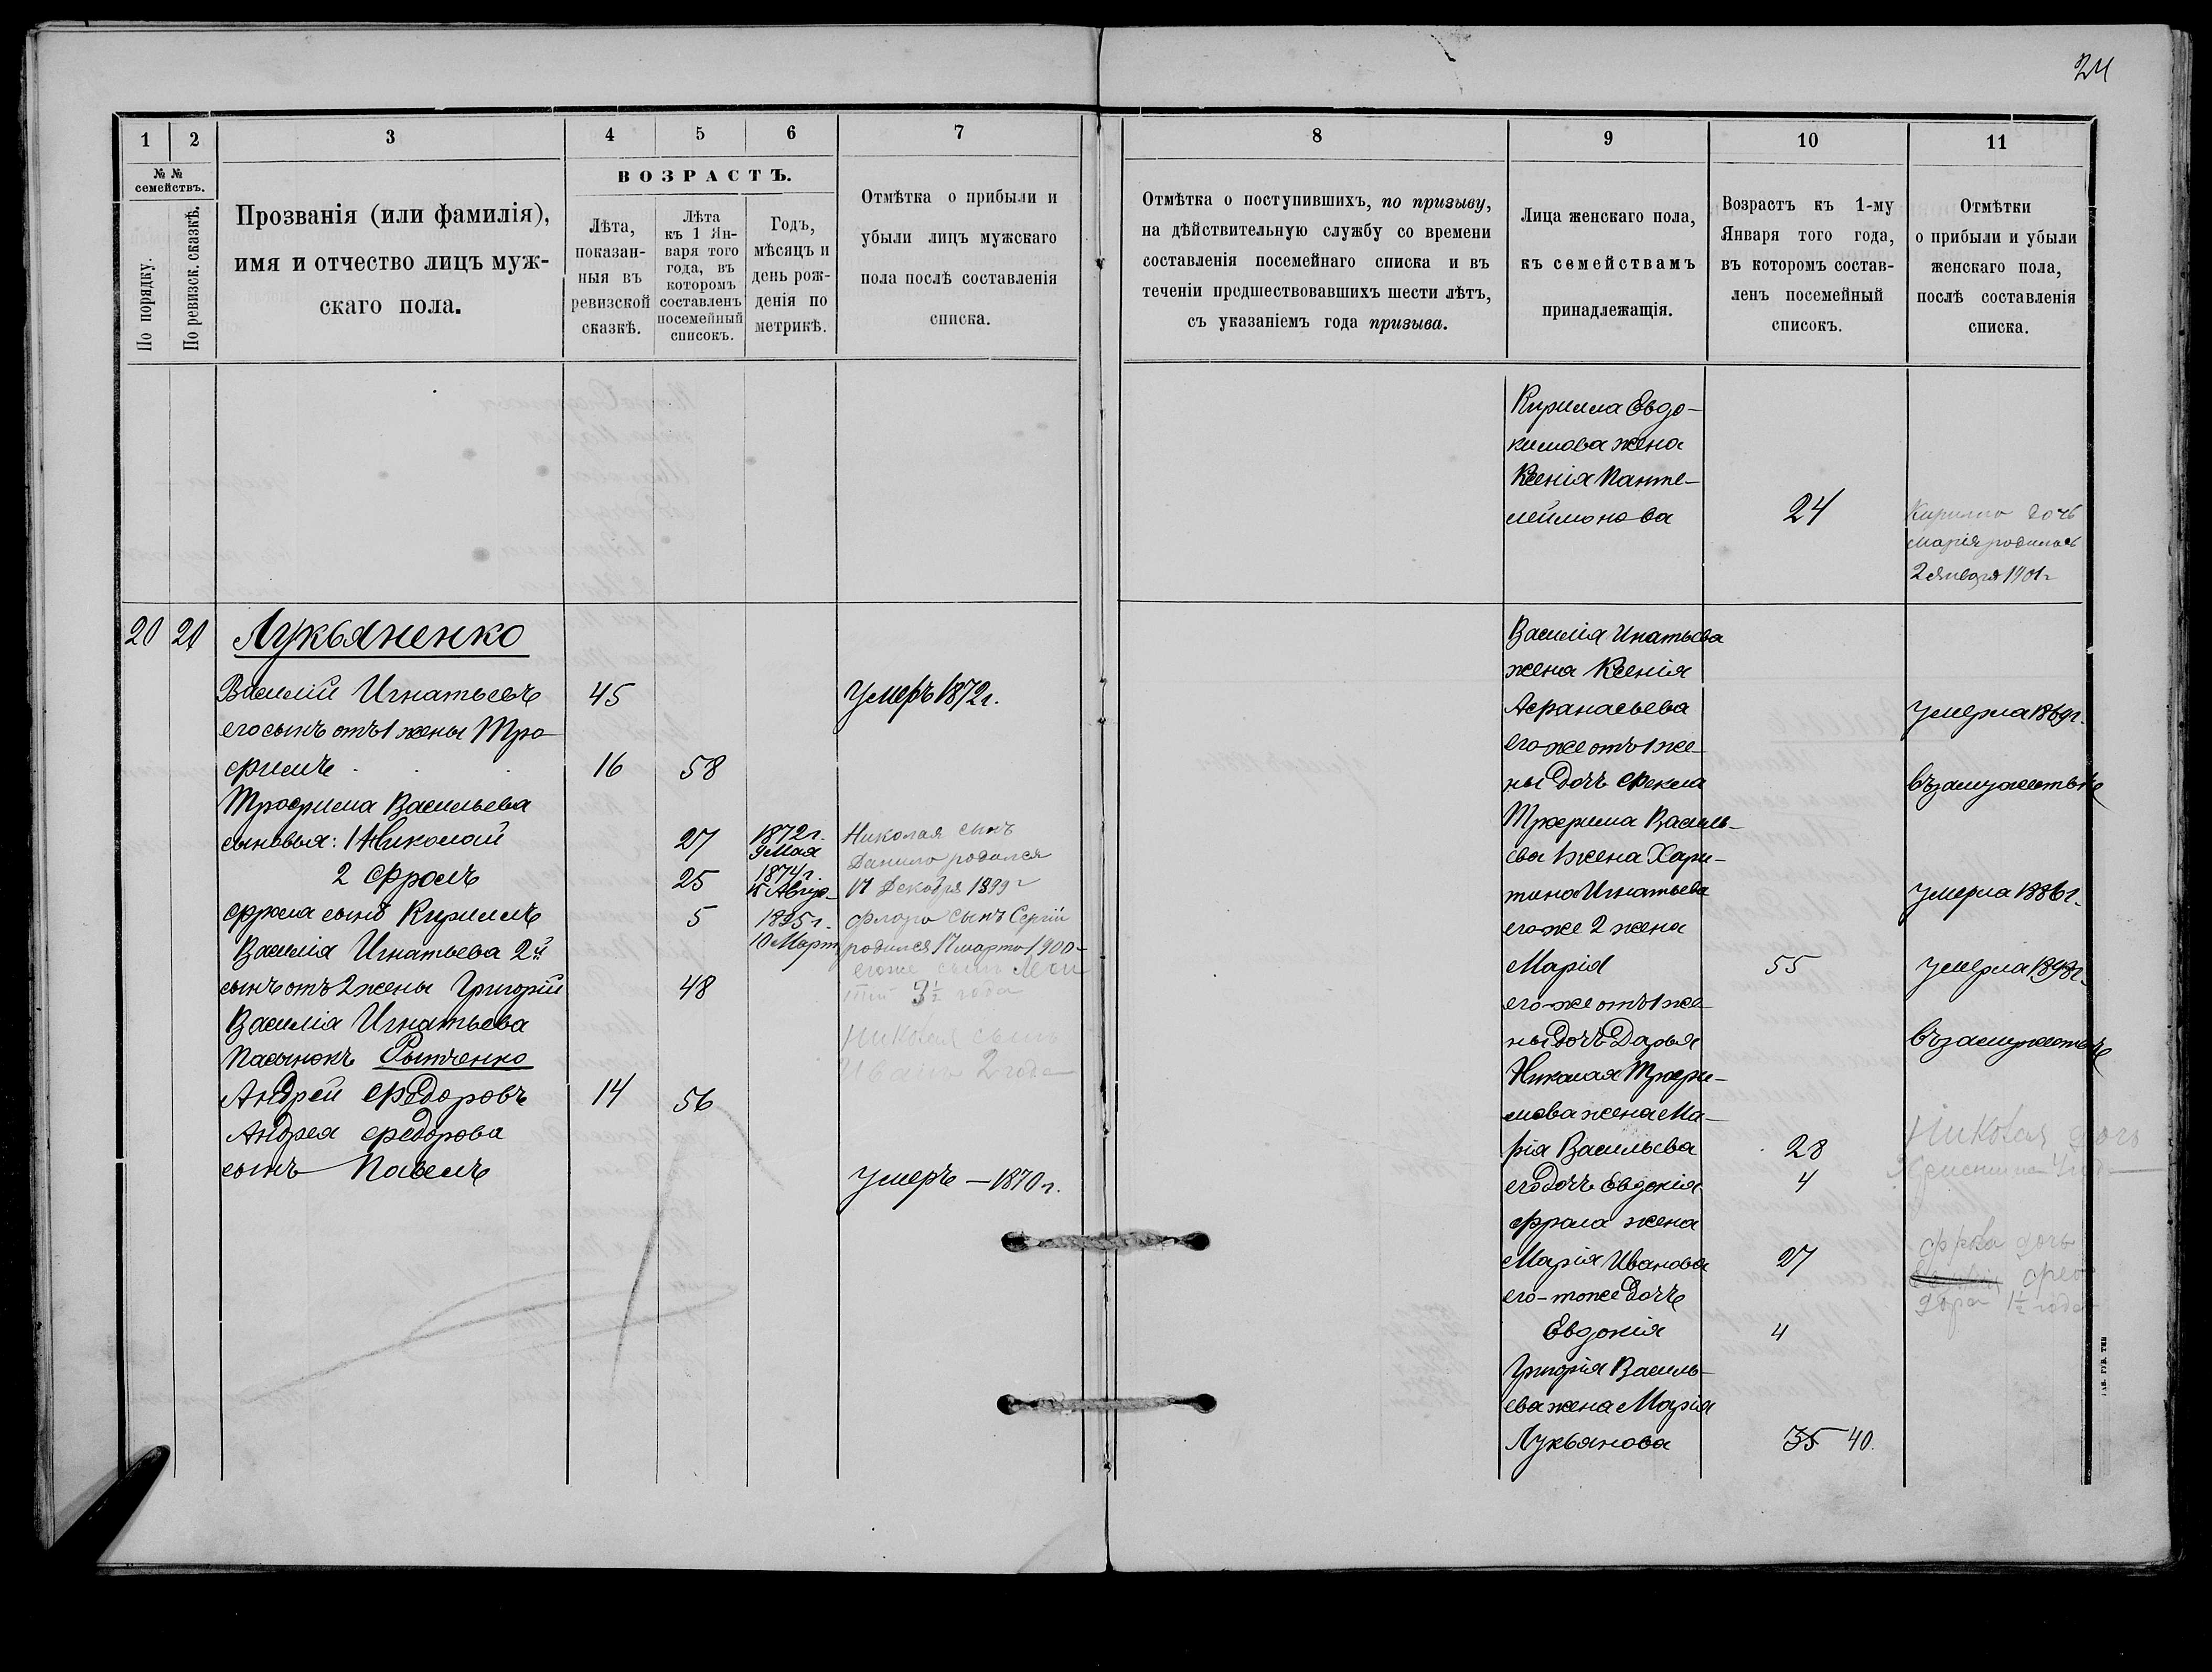 24
1
2
3
4
5
6
7
8
9
10
11
№ №
семействъ.
По порядку.
По ревизск. сказкѣ.
Прозванія (или фамилія),
имя и отчество лицъ муж-
скаго пола.
ВОЗРАСТЪ.
Лѣта,
показан-
ныя въ
ревизской
сказкѣ.
Лѣта
къ 1 Ян-
варя того
года, въ
которомъ
составленъ
посемейный
списокъ.
Годъ,
мѣсяцъ и
день рож-
денія по
метрикѣ.
Отмѣтка о прибыли и
убыли лицъ мужскаго
пола послѣ составленія
списка.
Отмѣтка о поступившихъ, по призыву,
на дѣйствительную службу со времени
составленія посемейнаго списка и въ
теченіи предшествовавшихъ шести лѣтъ,
съ указаніемъ года призыва.
Лица женскаго пола,
къ семействамъ
принадлежащія.
Возрастъ къ 1-му
Января того года,
въ которомъ состав-
ленъ посемейный
списокъ.
Отмѣтки
о прибыли и убыли
женскаго пола,
послѣ составленія
списка.
Кирилла Евдо-
кимова жена
Ксенія Панте-
леймонова 24
Кирилло дочь
Марія родилась
2 января 1901 г
20 21 Лукьяненко
Василій Игнатьевъ 45 Умеръ 1872 г.
его сынъ отъ 1 жены Тро
фимъ 16 58
Трофима Васильева
сыновья: 1 Николай 27 1872 г. 9 Мая
2 Фролъ 25 1874 г. 15 Авгус
Фрола сынъ Кириллъ 5 1895 г. 10 Март
Василія Игнатьева 2й
сынъ отъ 2 жены Григорій 48
Василія Игнатьева
пасынокъ Рытченко
Андрей Федоровъ 14 56
Андрея Федорова
сынъ Павелъ Умеръ — 1870 г.
Николая сынъ
Данило родился
17 Декабря 1899 г
Флора сынъ Сергій
родился 17 марта 1900
егоже сынъ Леон
тій 3½ года
Николая сынъ
Иванъ 2 года
Василія Игнатьева
жена Ксенія
Афанасьева Умерла 1869 г.
его же отъ 1 же
ны дочь Фекла въ замужествѣ
Трофима Василь-
ева 1 жена Хари-
тина Игнатьева Умерла 1886 г.
его же 2 жена
Марія 55 Умерла 1898 г.
его же отъ 1 же
ны дочь Дарья въ замужествѣ
Николая Трофи-
мова жена Ма-
рія Васильева 28
его дочь Евдокія 4
Николая дочь
Фрола жена
Марія Иванова 27
Фрола дочь
Фео
дора 1½ года
его-тоже дочь
Евдокія 4
Григорія Василь-
ева жена Марія
Лукьянова 35 40.